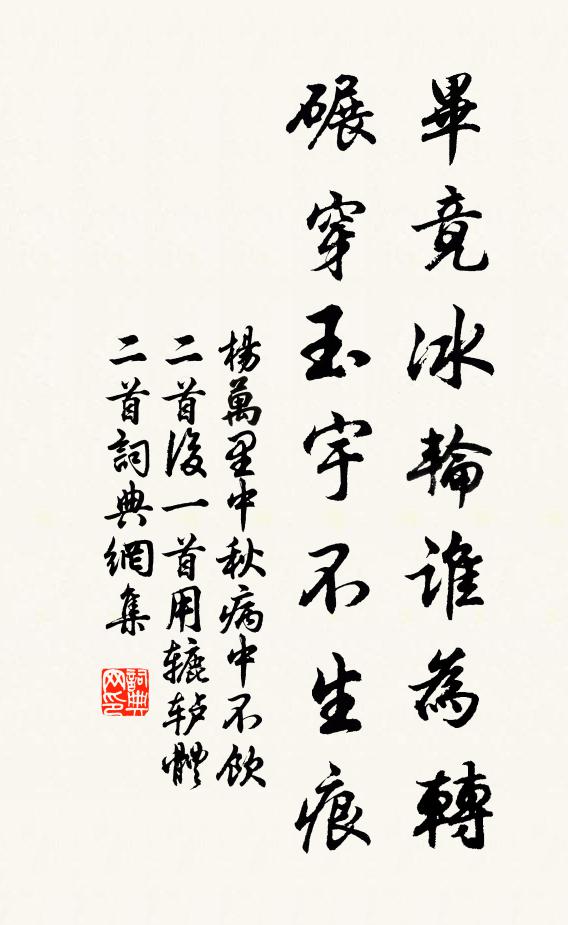 畢竟冰輪誰為轉
碾穿玉宇不生痕
楊萬里中秋病中不飲
二首後一首用辘轳體
二首詞典網集
詞典
网印